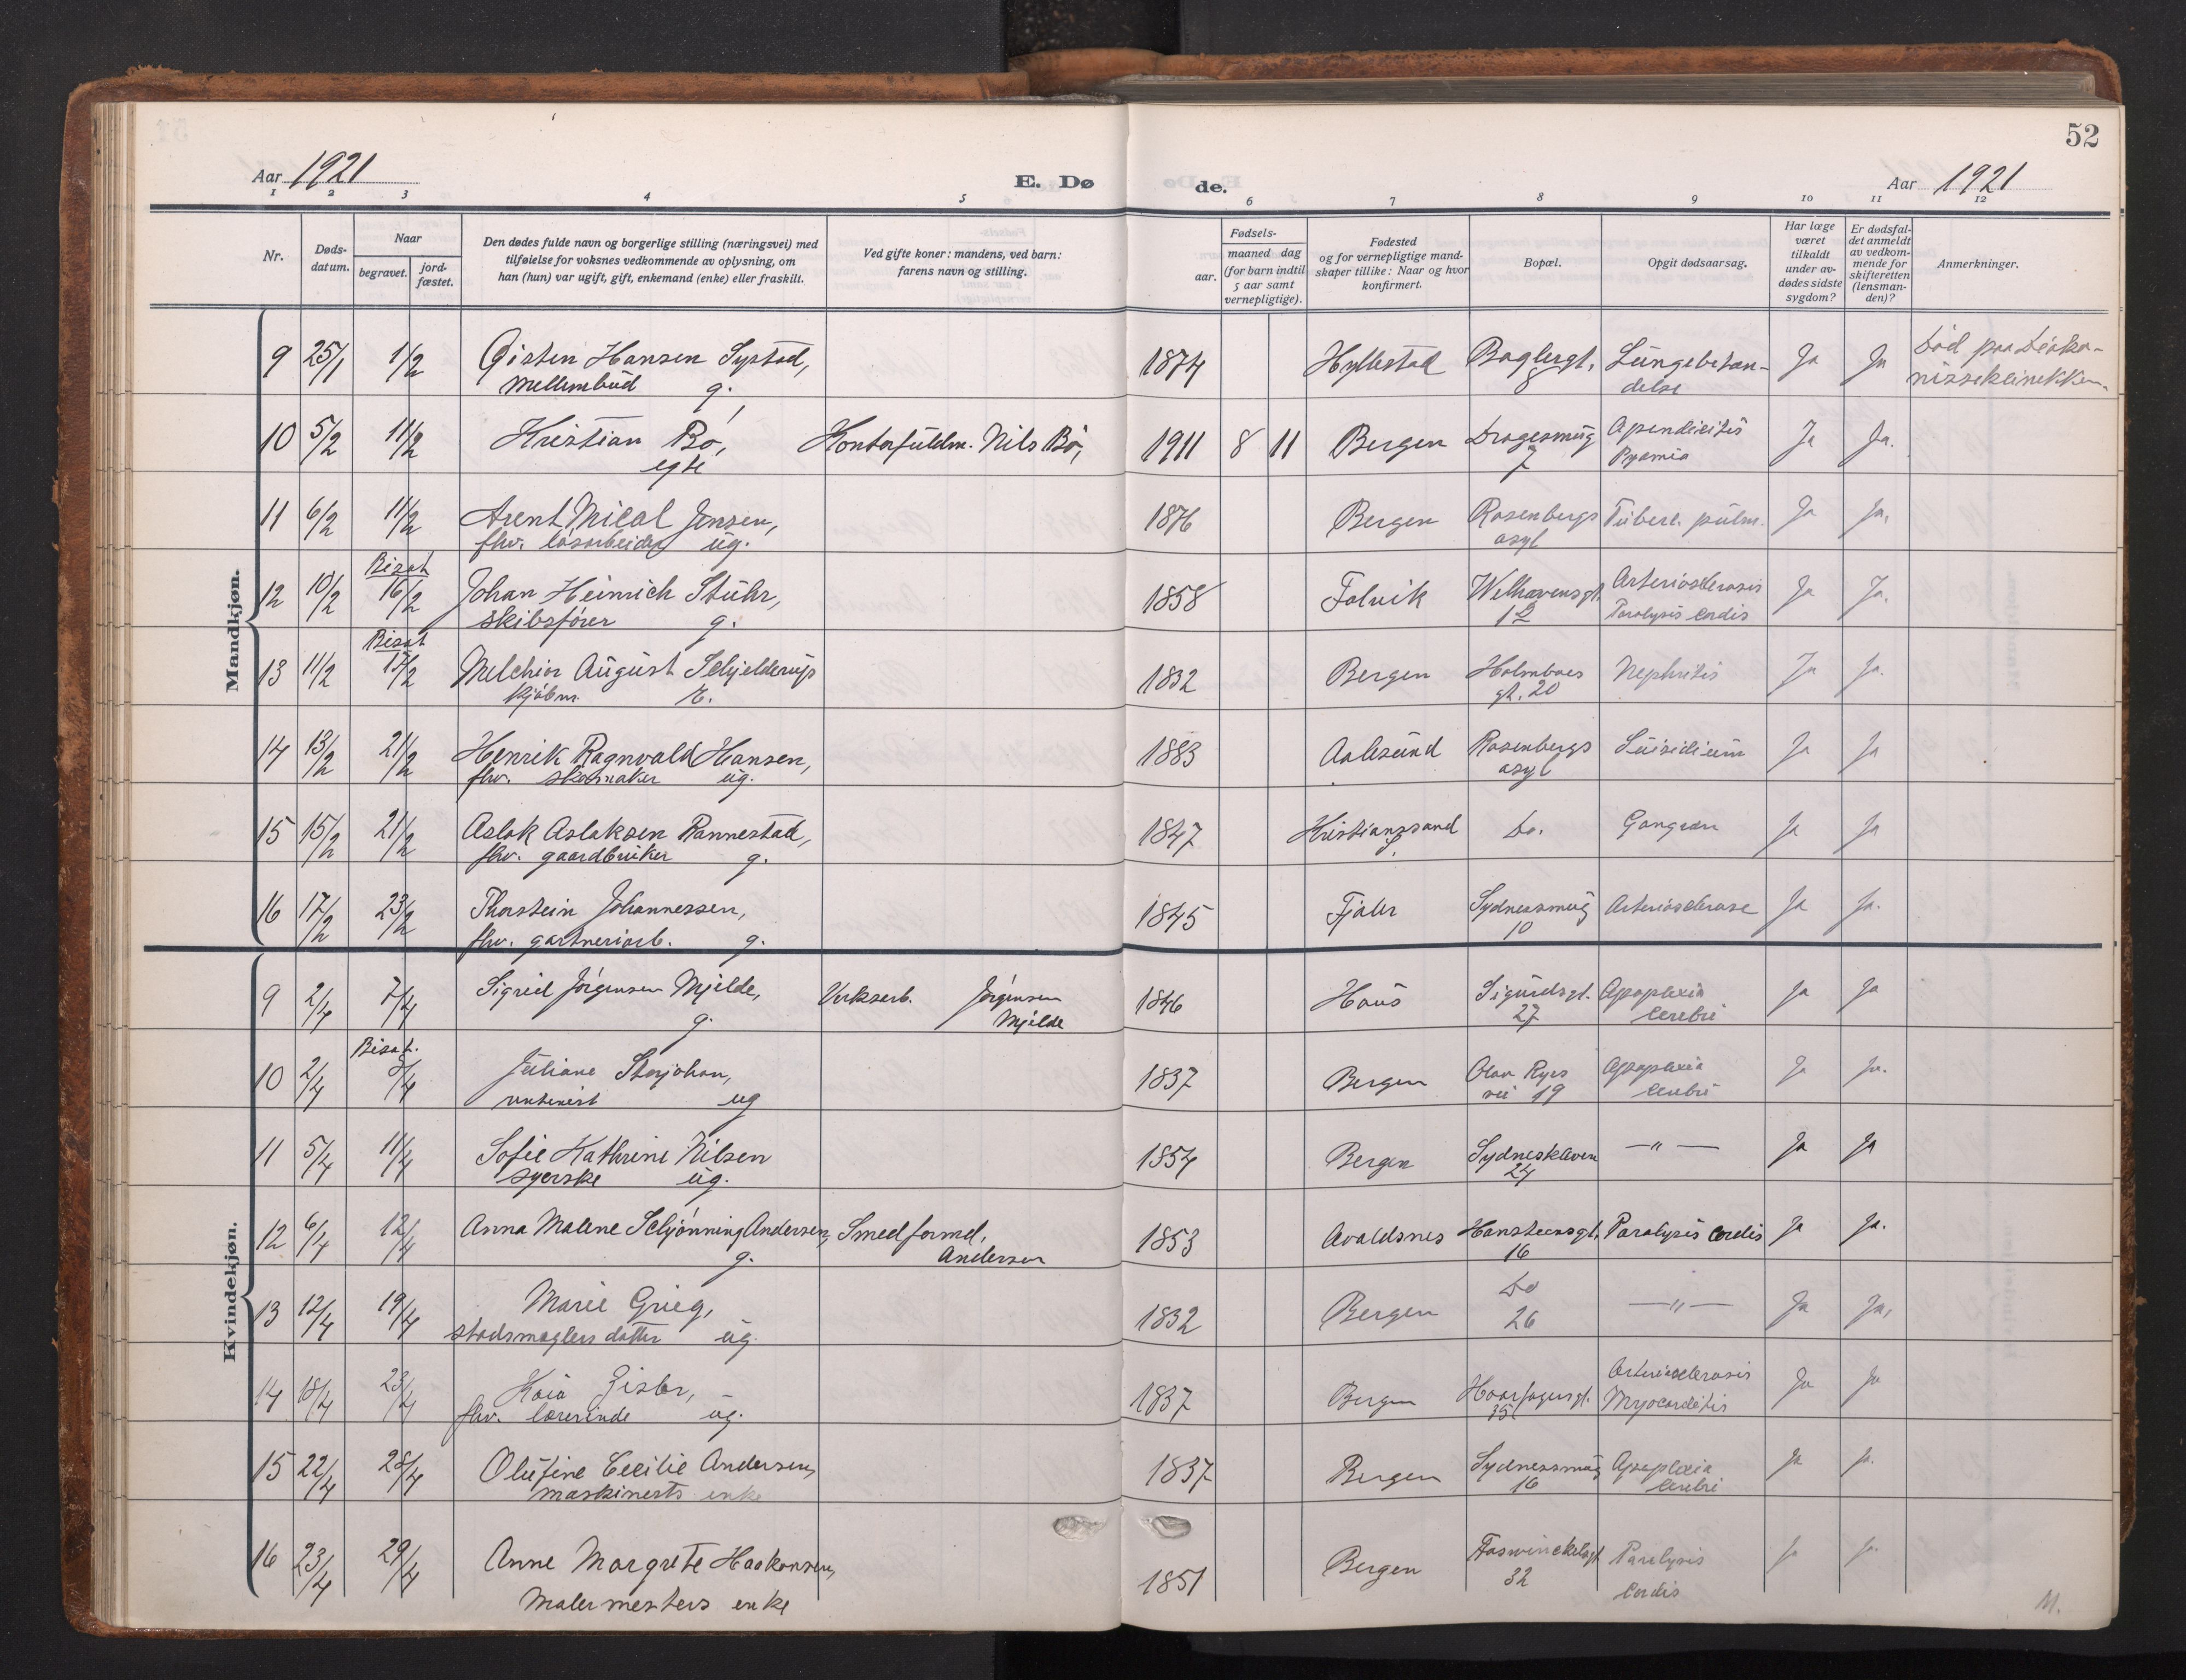 52
Aar 1921 E. Dø de. Aar 1921
1 2 3 4 5 6 7 8 9 10 11 12
Nr.
Døds-
datum.
Naar
begravet.
jord-
fæstet.
Den dødes fulde navn og borgerlige stilling (næringsvei) med
tilføielse for voksnes vedkommende av oplysning, om
han (hun) var ugift, gift, enkemand (enke) eller fraskilt.
Ved gifte koner: mandens, ved barn:
farens navn og stilling.
Fødsels-
aar.
maaned dag
(for barn indtil
5 aar samt
vernepligtige).
Fødested
og for vernepligtige mand-
skaper tillike: Naar og hvor
konfirmert.
Bopæl.
Opgit dødsaarsag.
Har læge
været
tilkaldt
under av-
dødes sidste
sygdom?
Er dødsfal-
det anmeldt
av vedkom-
mende for
skifteretten
(lensman-
den)?
Anmerkninger.
Mandkjøn.
9 25/1 1/2 Gisten Hansen Systad, 1874 Hyllestad Baglergt. Lungebetæn- Ja Ja Død paa Diako-
Mellembud g. 8 delse nisseklinekken
10 5/2 11/2 Kristian Bø, Kontorfuldm. Nils Bø, 1911 8 11 Bergen Dragesmug Apendicitis Ja Ja.
egte 7 Pyæmia
11 6/2 11/2 Arent Mical Jensen, 1876 Bergen Rosenbergs Tuberc. pulm. Ja Ja,
fhv. løsarbeider ug. asyl
Bisat
12 10/2 16/2 Johan Heinrich Stuhr, 1858 Folvik Welhavensgt. Arteriosclerosis Ja Ja.
skibsfører g. Paralysis Cordis
Bisat
13 11/2 17/2 Melchior August Schjelderup 1832 Bergen Holmboes Nephritis Ja Ja.
kjøbm. E. gt. 20
14 13/2 21/2 Henrik Ragnvald Hansen, 1883 Aalesund Rosenbergs Suicidium Ja Ja
fhv. skomaker ug. asyl
15 15/2 21/2 Aslak Aslaksen Rannestad, 1847 Kristianssand Do. Gangræn Ja Ja
fhv. gaardbruker g.
16 17/2 23/2 Thorstein Johannessen, 1845 Fjaler Sydnessmug Arteriosclerose Ja Ja.
fhv. gartneriarb. g. 10
Kvindekjøn.
9 2/4 7/4 Sigrid Jørgensen Mjelde, Verksarb. Jørgensen 1846 Haus Sigurdsgt. Apoplexia Ja Ja
g. Mjelde 27 Cerebri
Bisat.
10 2/4 8/4 Juliane Storjohan, 1837 Bergen Olav Ryes Apoplexia Ja Ja.
rentenist ug vei 19 Cerebri
11 5/4 11/4 Sofie Kathrine Nilsen 1854 Bergen Sydneskleven — " — Ja Ja
syerske ug. 24
12 6/4 12/4 Anna Malene Schjønning Andersen, Smedformd. 1853 Avaldsnes Hansteensgt. Paralysis Cordis Ja Ja.
g. Andersen 16
13 12/4 19/4 Marie Grieg, 1832 Bergen Do — " — Ja Ja,
stadsmæglers datter ug. 26
14 18/4 23/4 Kaia Zisler, 1837 Bergen Haarfagersgt. Arteriosclerosis Ja Ja
fhv. lærerinde ug. 35 Myocarditis
15 22/4 28/4 Olufine Cecilie Andersen, 1837 Bergen Sydnessmug Apoplexia Ja Ja.
maskinists enke 16 Cerebri
16 23/4 29/4 Anne Margrete Haakonsen, 1851 Bergen Foswinckelsgt Paralysis Ja Ja.
Malermesters enke 32 Cordis
M.